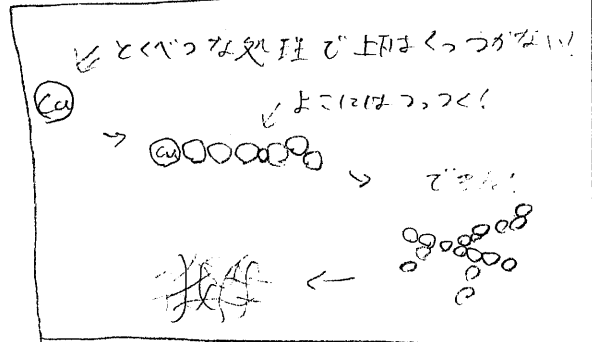 とくべつな処理で上下はくっつかない!
Cu
よこにはつっつく!
Cu
できた!